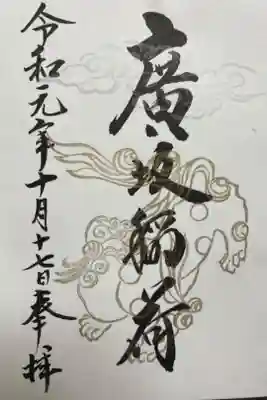 廣坂稲荷
令和元年十月十七日奉拝